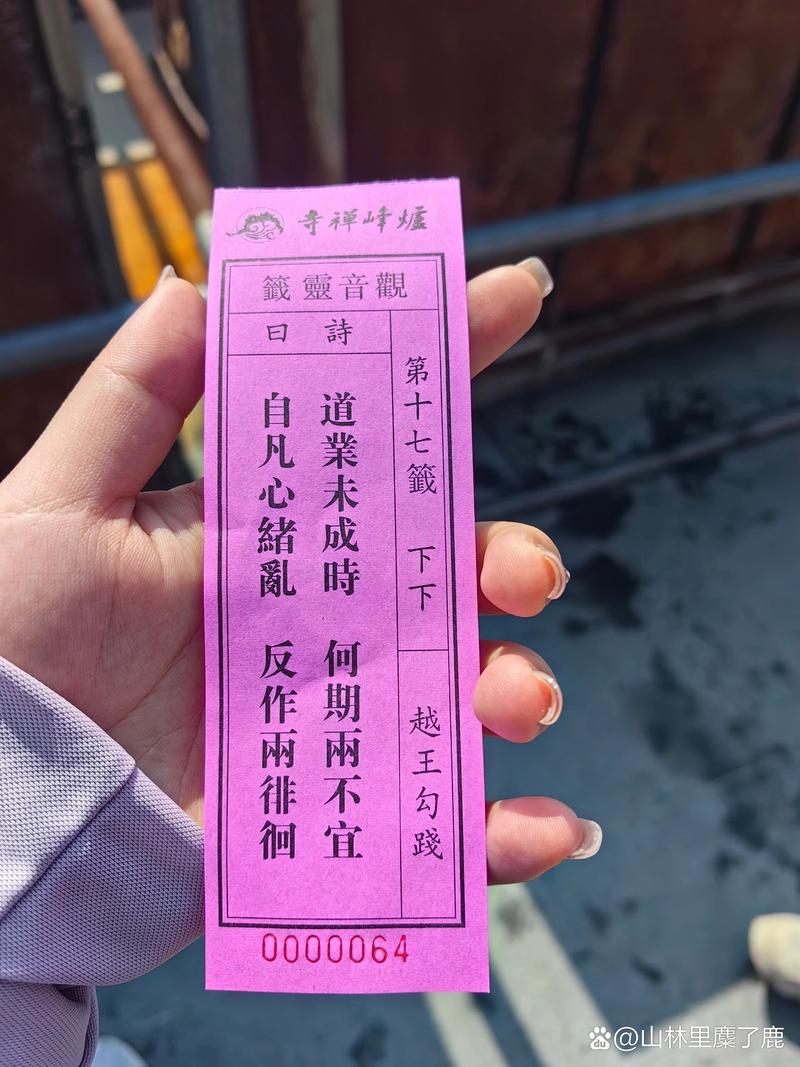 寺禪峰爐
籤靈音觀
第十七籤 下下 越王勾踐
曰詩
道業未成時 何期兩不宜
自凡心緒亂 反作兩徘徊
0000064
du @山林里麋了鹿